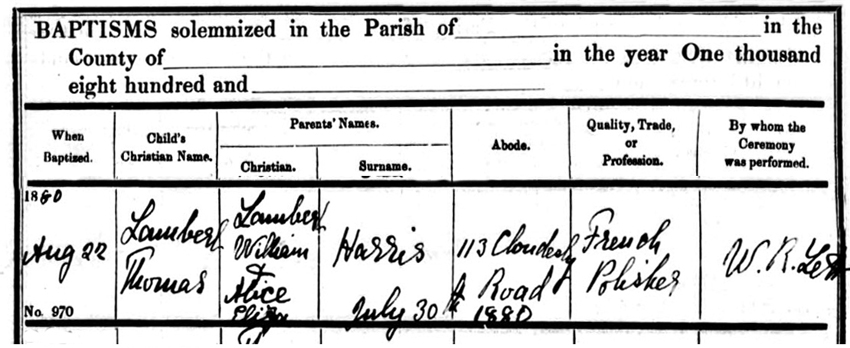 BAPTISMS solemnized in the Parish of in the
County of in the year One thousand
eight hundred and
When Baptized.
Child's Christian Name.
Parents' Names.
Christian.
Surname.
Abode.
Quality, Trade, or Profession.
By whom the Ceremony was performed.
1880
Aug 22
No. 970
Lambert
Thomas
Lambert
William
&
Alice
Eliza
Harris
July 30th 1880
113 Cloudesly
Road
French
Polisher
W. R.